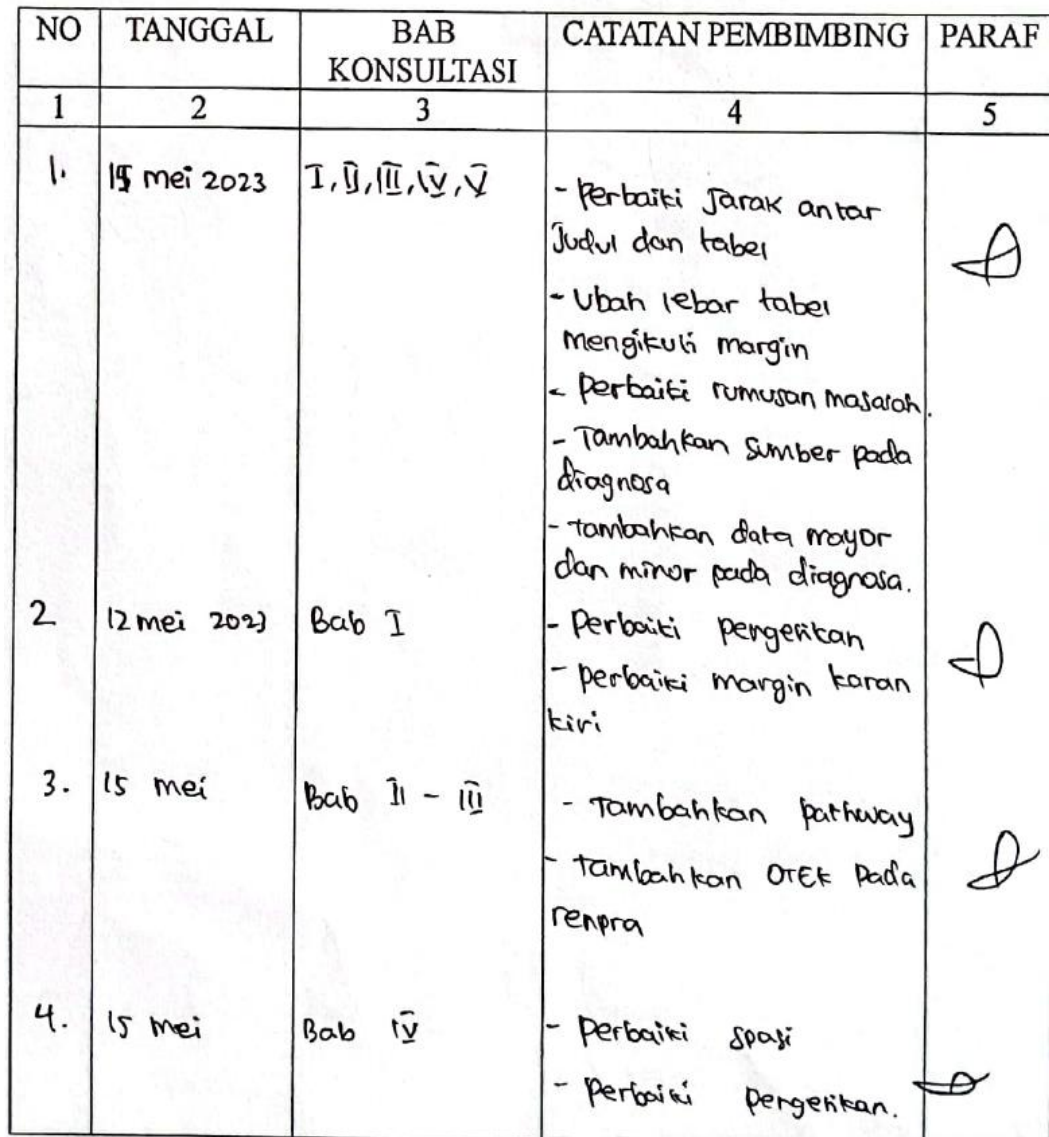 NO TANGGAL BAB KONSULTASI CATATAN PEMBIMBING PARAF
1 2 3 4 5
1. mei 2023 I, II, III, IV, V - Perbaiki Jarak antar
Judul dan tabel
- Ubah lebar tabel
mengikuti margin
- Perbaiki rumusan masalah.
- Tambahkan Sumber pada
diagnosa
- tambahkan data mayor
dan minor pada diagnosa.
2 12 mei 2023 Bab I - Perbaiki pengetikan
- perbaiki margin kanan
kiri
3. 15 mei Bab II - III - Tambahkan pathway
- Tambahkan OTEK Pada
renpra
4. 15 mei Bab IV - Perbaiki spasi
- Perbaiki pengetikan.